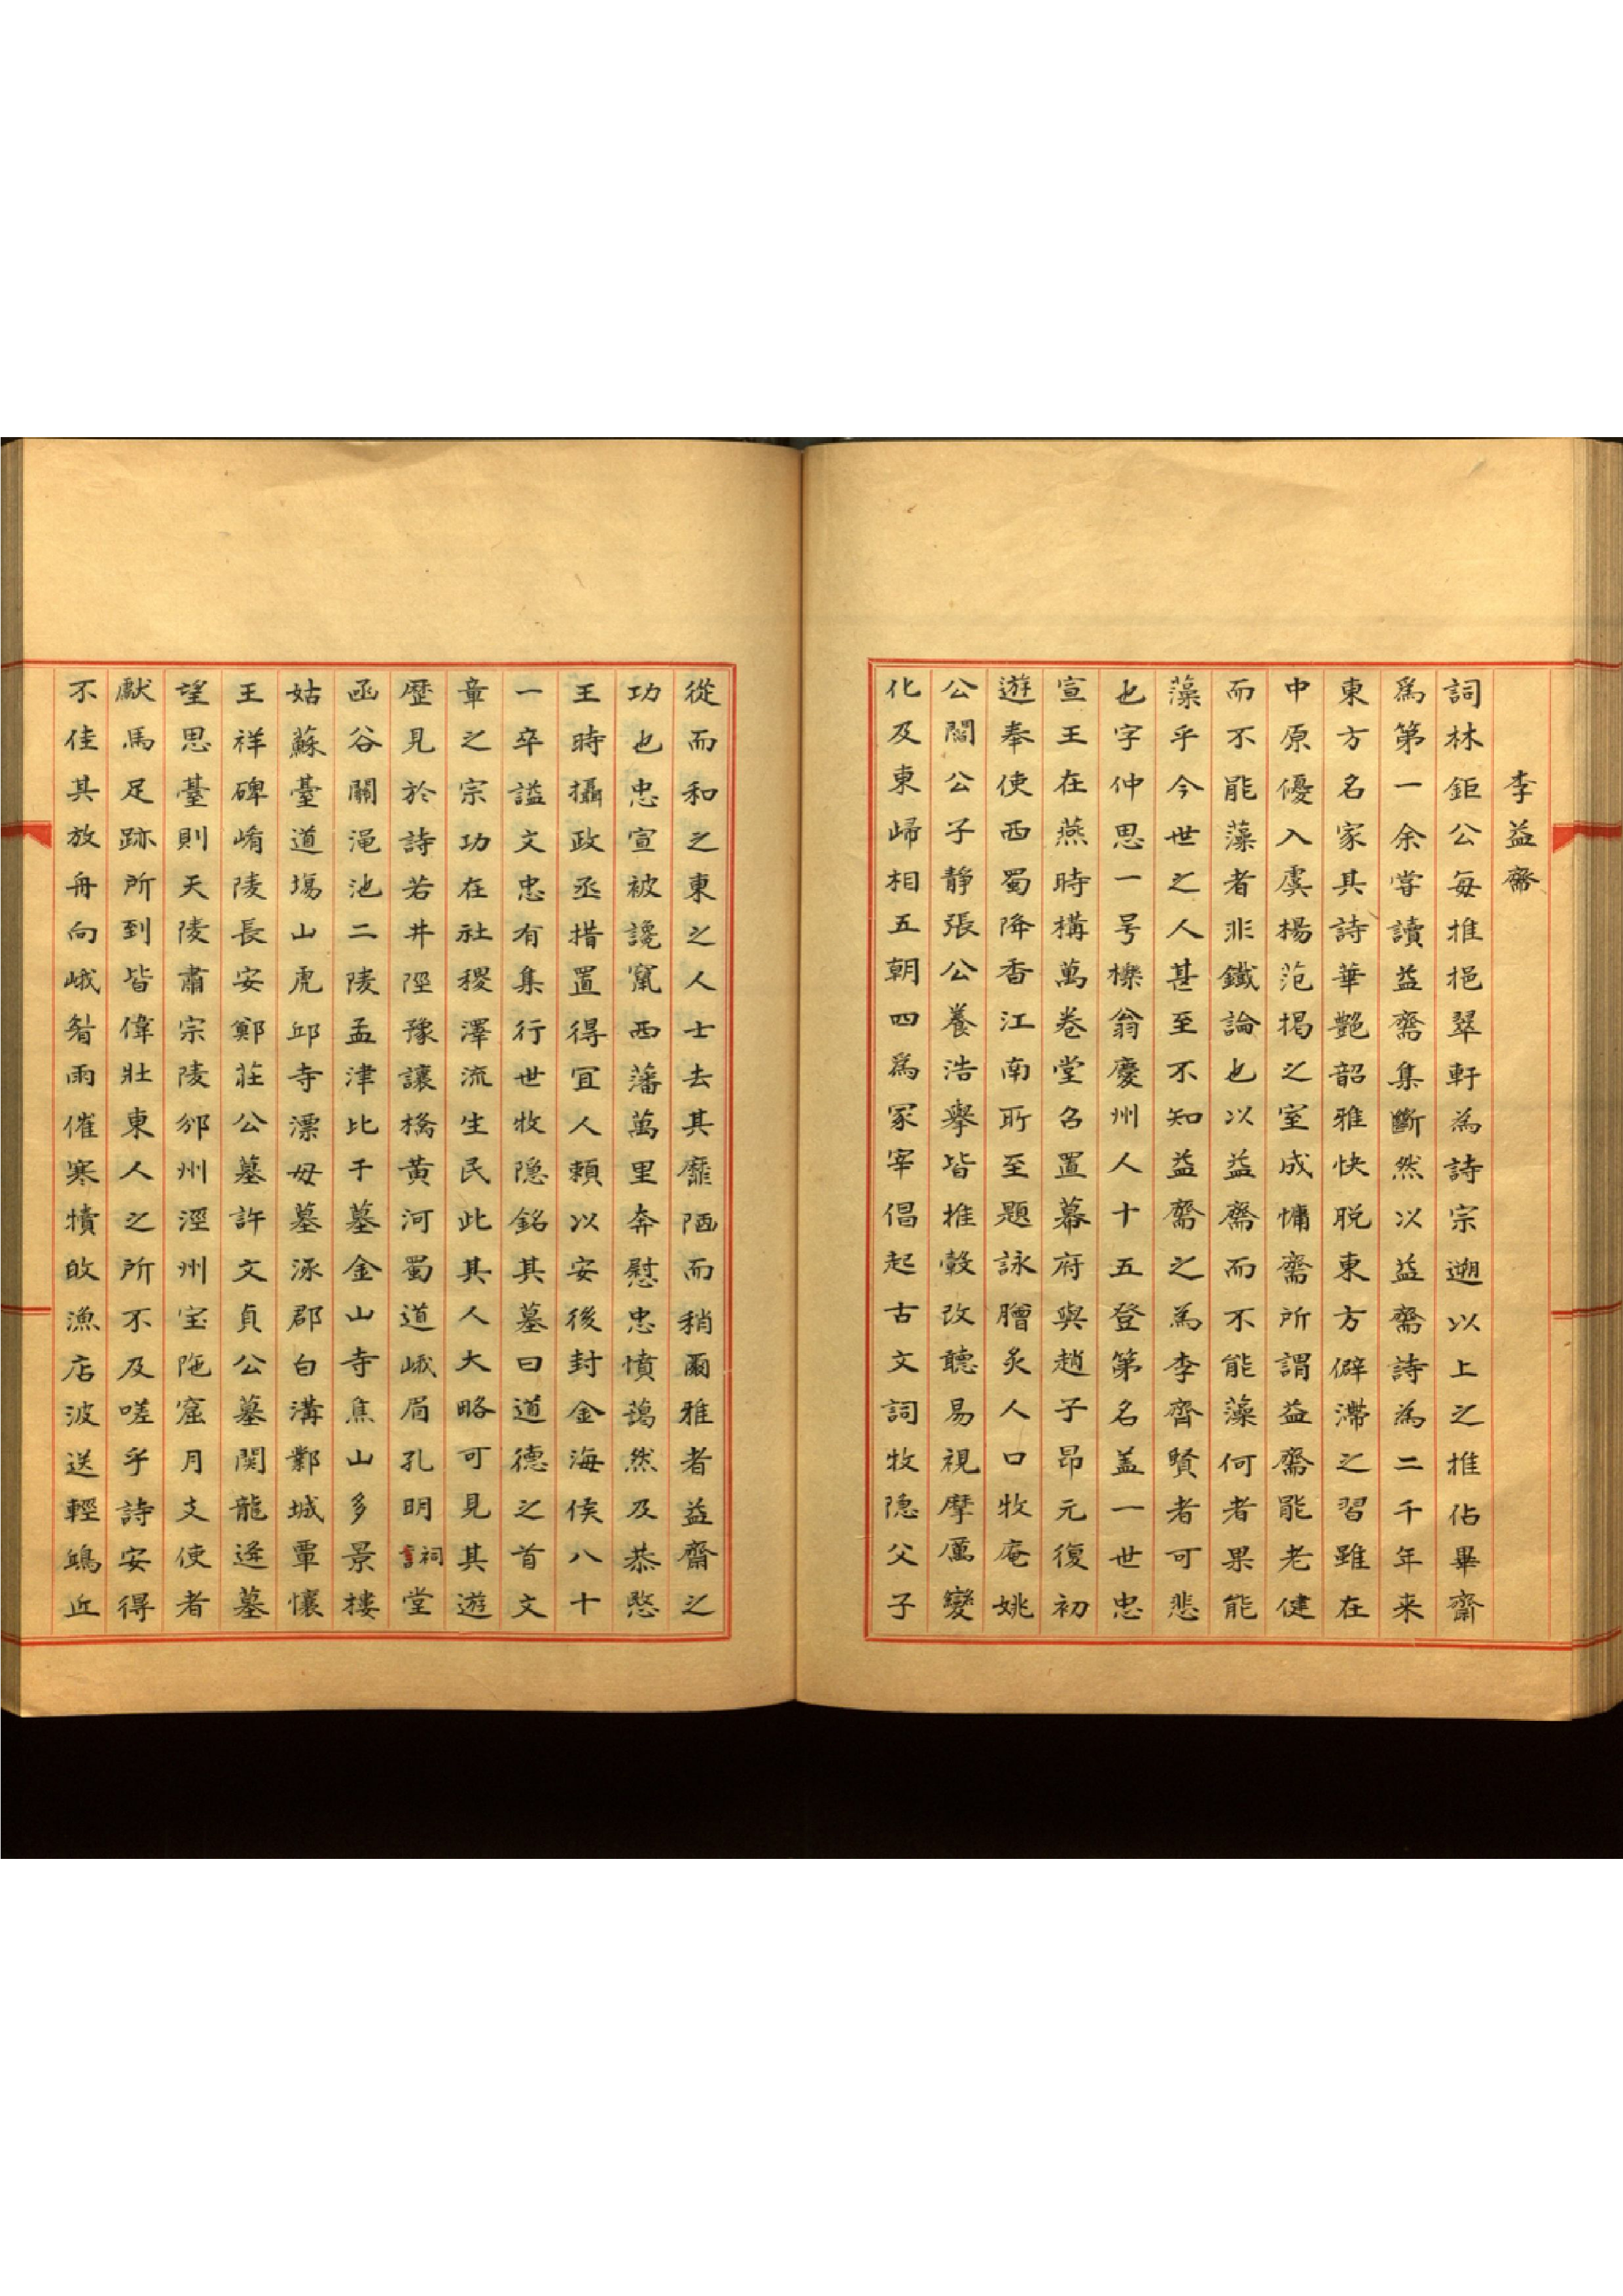 李益齋
詞林鉅公每推挹翠軒為詩宗遡以上之推佔畢齋
爲第一余甞讀益齋集斷然以益齋詩為二千年来
東方名家其詩華艶韶雅快脱東方僻滯之習雖在
中原優入虞楊范掲之室成慵齋所謂益齋能老健
而不能藻者非鐵論也以益齋而不能藻何者果能
藻乎今世之人甚至不知益齋之為李齊賢者可悲
也字仲思一号櫟翁慶州人十五登第名盖一世忠
宣王在燕時構萬卷堂召置幕府與趙子昂元復初
遊奉使西蜀降香江南所至題詠膾炙人口牧庵姚
公閻公子靜張公養浩擧皆推轂改聽易視摩厲變
化及東歸相五朝四爲冢宰倡起古文詞牧隐父子
從而和之東之人士去其靡陋而稍爾雅者益齋之
功也忠宣被讒竄西藩萬里奔慰忠憤藹然及恭愍
王時攝政丞措置得宜人頼以安後封金海侯八十
一卒謚文忠有集行世牧隐銘其墓曰道德之首文
章之宗功在社稷澤流生民此其人大略可見其遊
歷見於詩若井陘豫讓橋黃河蜀道峨眉孔明祠堂
函谷關渑池二陵孟津比干墓金山寺焦山多景樓
姑蘇臺道塲山虎邱寺漂母墓涿郡白溝鄴城覃懷
王祥碑崤陵長安鄭莊公墓許文貞公墓関龍逄墓
望思臺則天陵肅宗陵邠州涇州宝陁窟月支使者
獻馬足跡所到皆偉壯東人之所不及嗟乎詩安得
不佳其放舟向峨眉雨催寒犢皈漁店波送輕鷗近